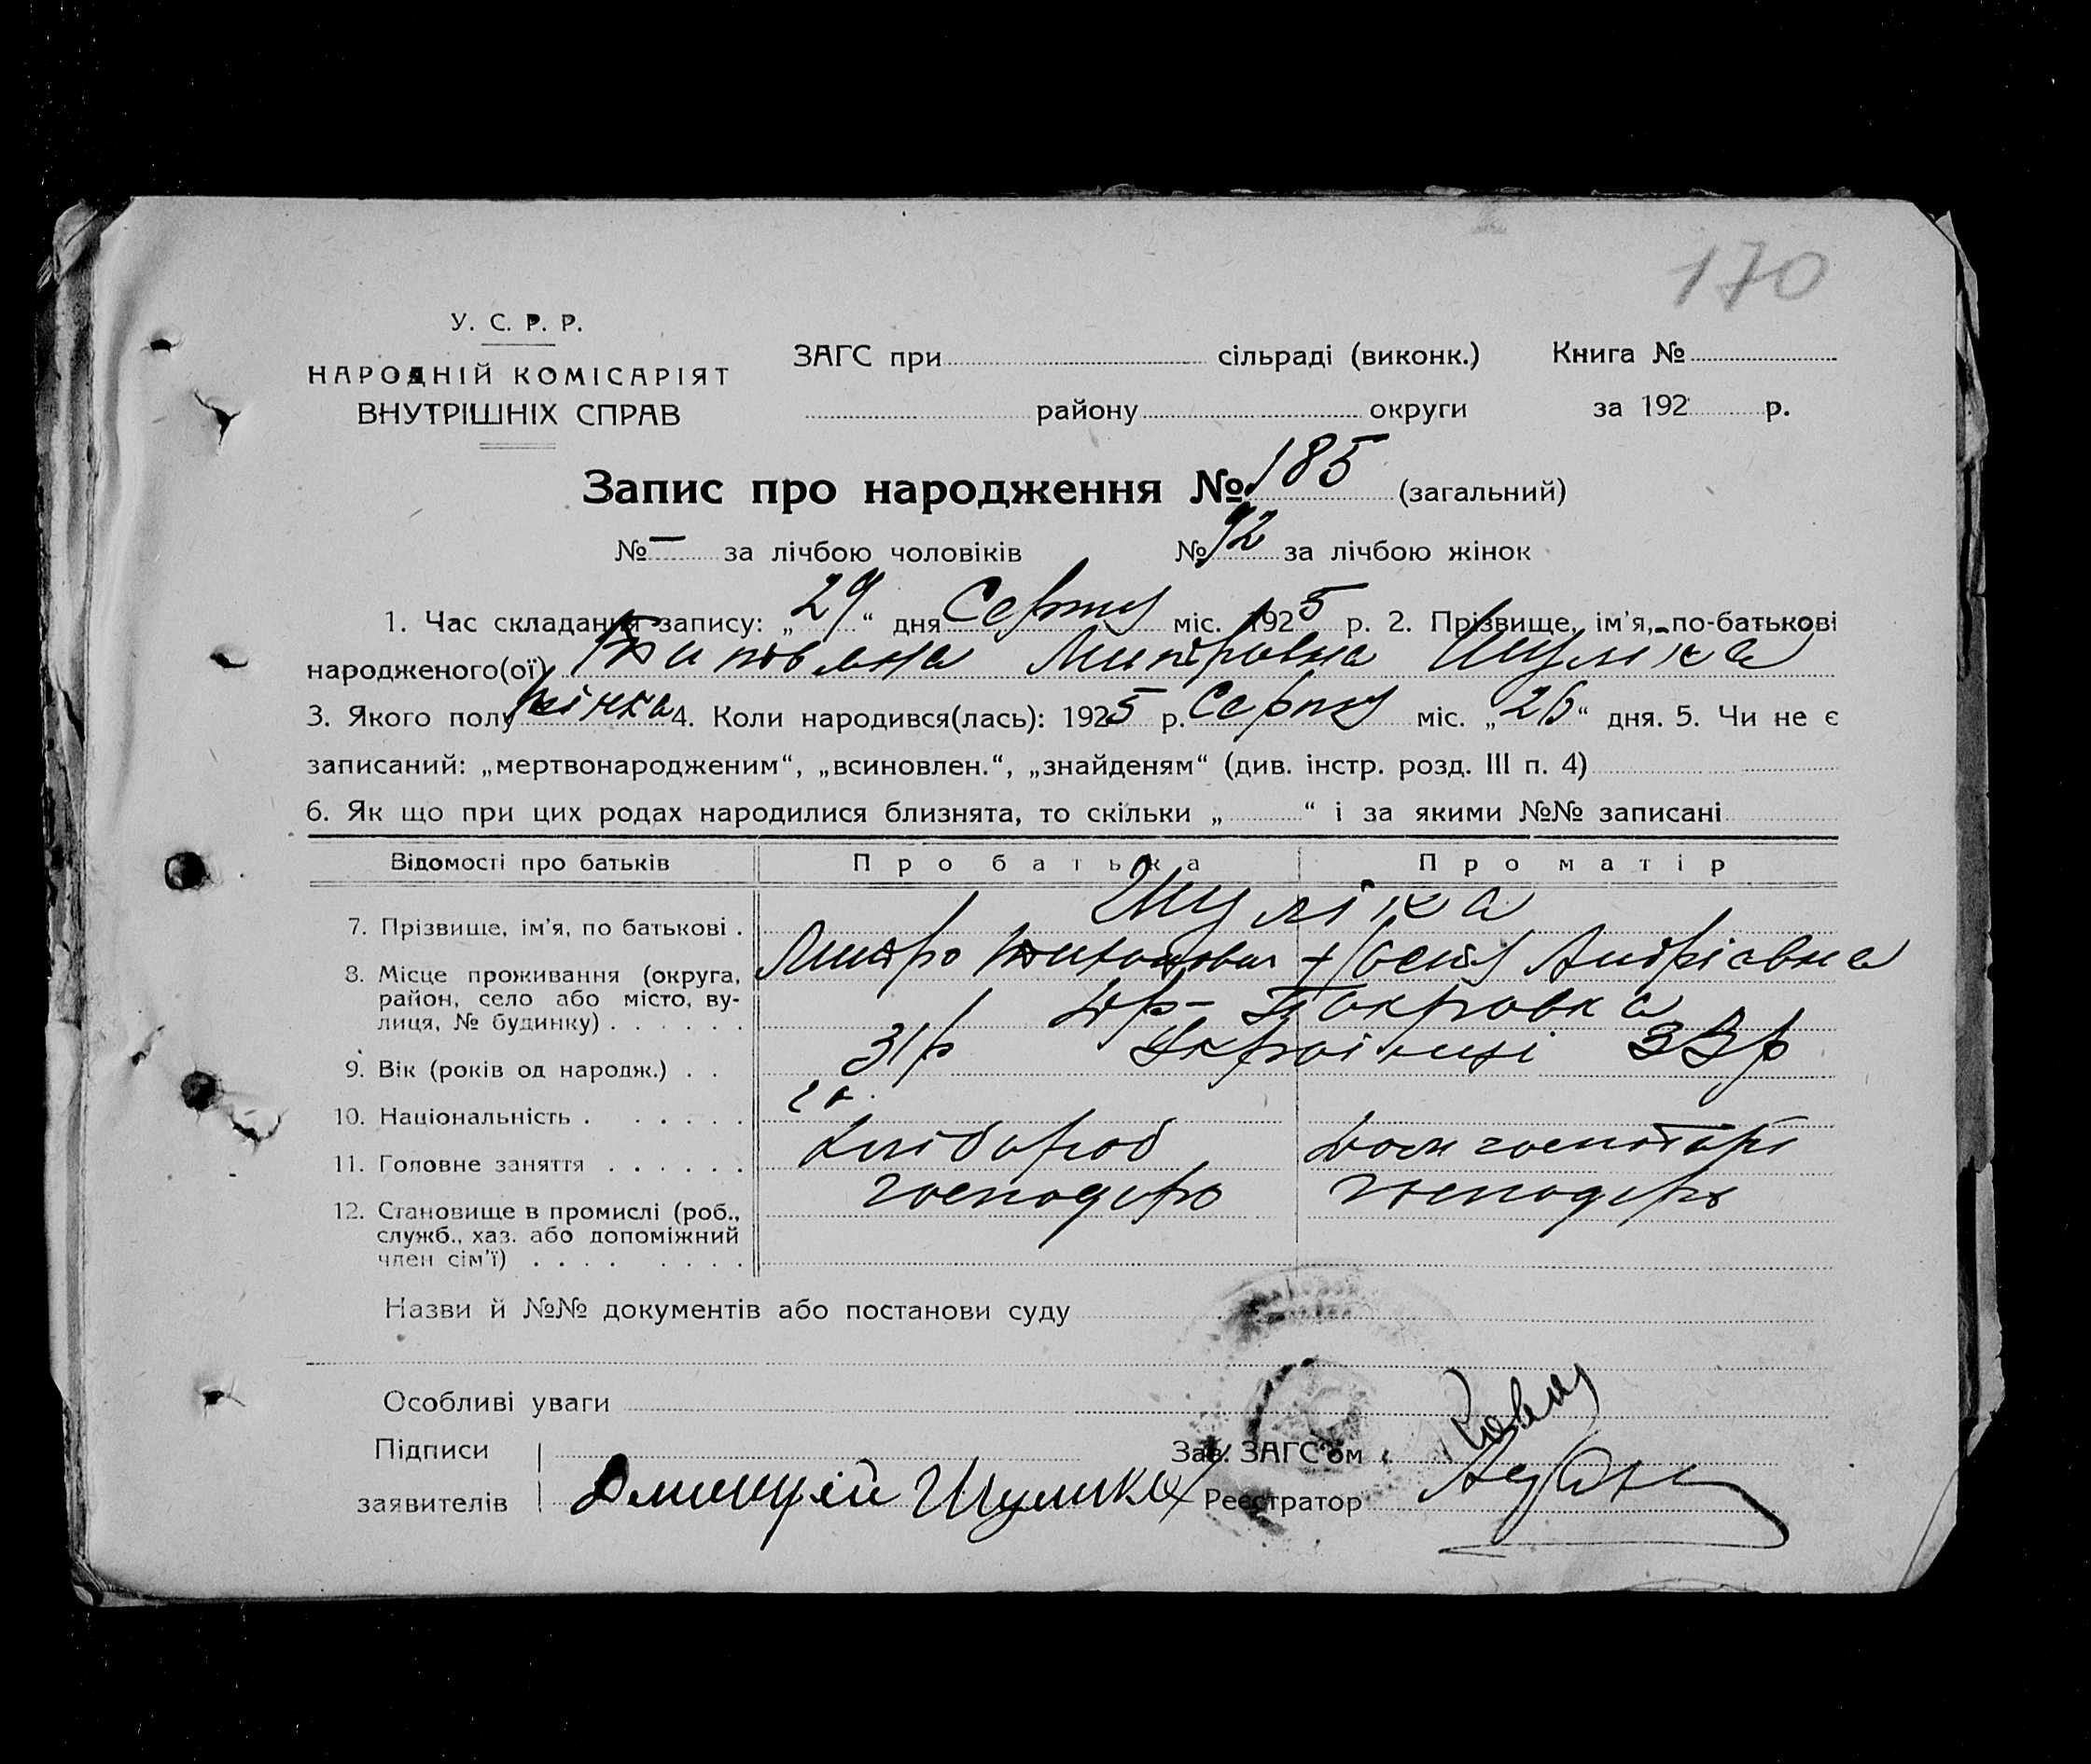 170
У. С. Р. Р.
НАРОДНІЙ КОМІСАРІЯТ
ВНУТРІШНІХ СПРАВ
ЗАГС при сільраді (виконк.) Книга №
району округи за 192 р.
Запис про народження № 185 (загальний)
№ — за лічбою чоловіків № 92 за лічбою жінок
1. Час складання запису: „29“ дня Серпня міс. 1925 р. 2. Прізвище, ім'я, по-батькові
народженого(ої) Митровна Шуліка
3. Якого полу жінка 4. Коли народився(лась): 1925 р. Серпня міс. „26“ дня. 5. Чи не є
записаний: „мертвонародженим“, „всиновлен.“, „знайденям“ (див. інстр. розд. III п. 4)
6. Як що при цих родах народилися близнята, то скільки „ “ і за якими №№ записані
Відомості про батьків Про батька Про матір
Шуліка
7. Прізвище, ім'я, по батькові .
Митро Тихонович Андріавна
8. Місце проживання (округа, район, село або місто, ву-
лиця, № будинку) . . . . . .
Покровка
9. Вік (років од народж.) . . 31р Українці 33р
10. Національність . . . . . .
11. Головне заняття . . . . . . Хлібороб Дом господарь
господарь господарь
12. Становище в промислі (роб.,
служб., хаз. або допоміжний
член сім'ї) . . . . . . . .
Назви й №№ документів або постанови суду
Особливі уваги
Підписи Зав. ЗАГС'ом
заявителів Шулика Реєстратор